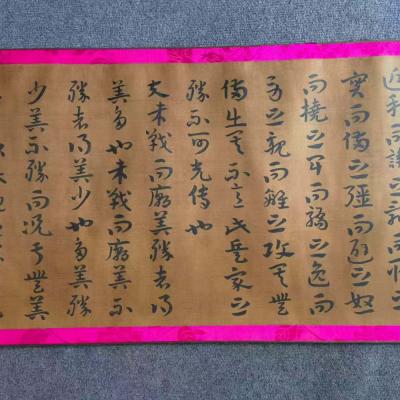 實而備之彊而避之怒
而撓之卑而驕之逸而
勞之親而離之攻其無
備出其不意此兵家之
勝不可先傳也
夫未戰而廟算勝者得
算多也未戰而廟算不
勝者得算少也多算勝
少算不勝而況于無算